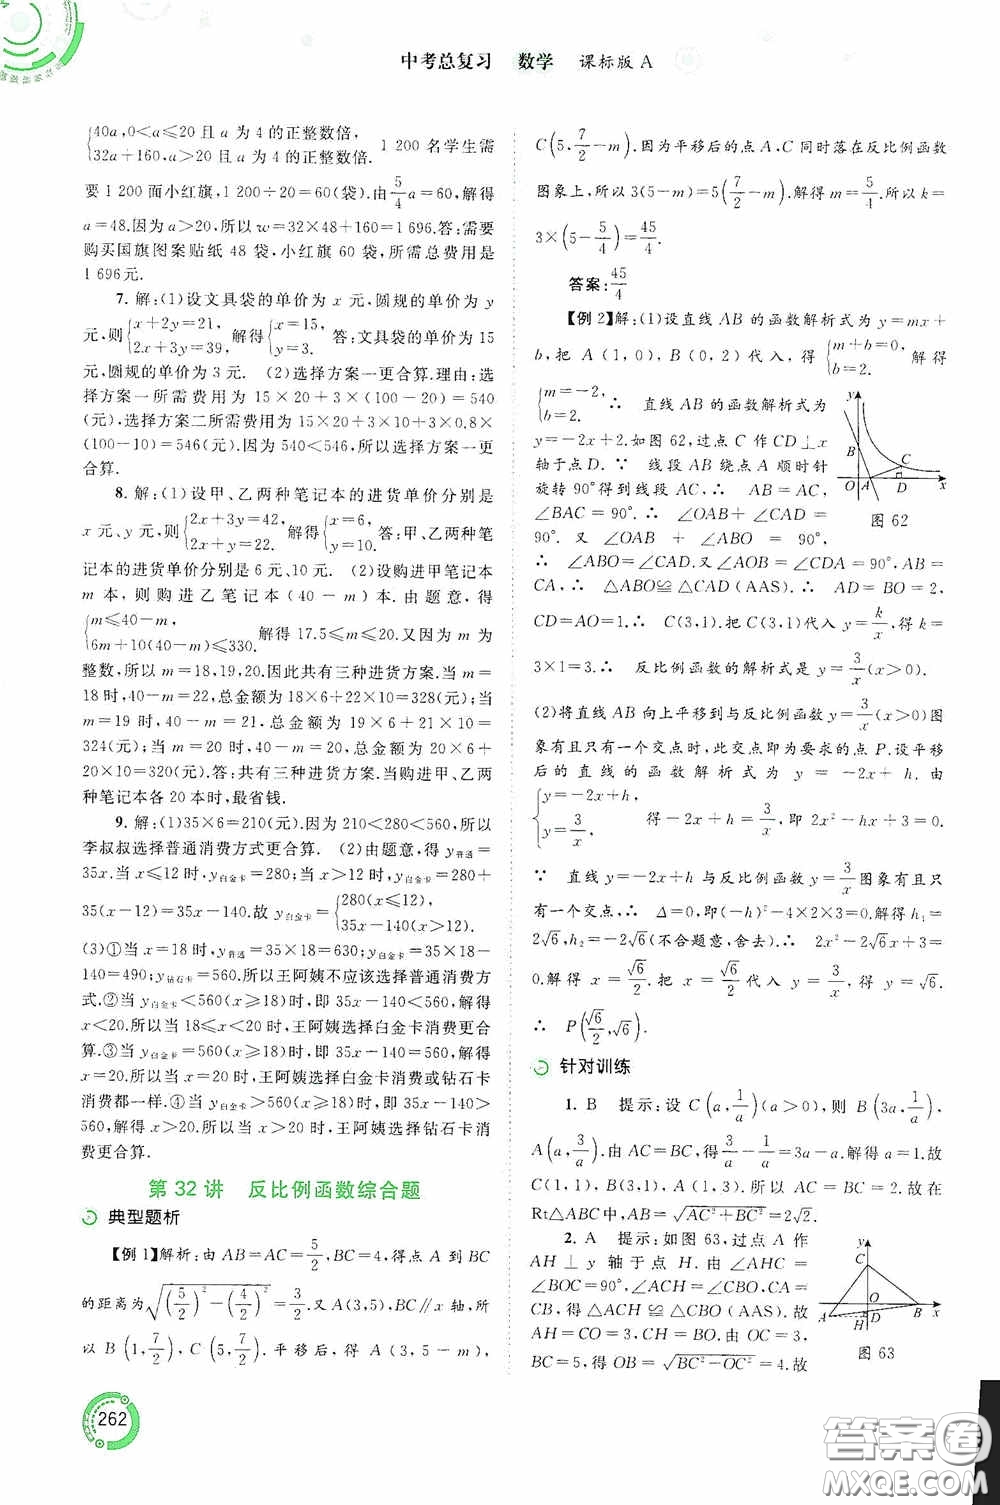 中考总复习 数学 课标版 A
{40a,0<a≤20且a为4的正整数倍,
32a+160,a>20且a为4的正整数倍. 1 200 名学生需
要 1 200 面小红旗,1 200÷20=60(袋).由5/4a=60,解得
a=48.因为a>20,所以w=32×48+160=1 696.答:需要
购买国旗图案贴纸 48 袋,小红旗 60 袋,所需总费用为
1 696元.
7. 解:(1)设文具袋的单价为 x 元,圆规的单价为 y
元,则{x+2y=21, 2x+3y=39, 解得{x=15, y=3. 答:文具袋的单价为 15
元,圆规的单价为 3 元. (2)选择方案一更合算.理由:选
择方案一所需费用为 15×20+3×(100-20)=540
(元).选择方案二所需费用为 15×20+3×10+3×0.8×
(100-10)=546(元).因为 540<546,所以选择方案一更
合算.
8. 解:(1)设甲、乙两种笔记本的进货单价分别是
x 元、y 元,则{2x+3y=42, x+5y=22. 解得{x=6, y=10. 答:甲、乙两种笔
记本的进货单价分别是 6 元、10 元. (2)设购进甲笔记本
m 本,则购进乙笔记本(40-m)本.由题意,得
{m≤40-m, 6m+10(40-m)≤330. 解得 17.5≤m≤20.又因为 m 为
整数,所以 m=18,19,20.因此共有三种进货方案.当 m=
18时,40-m=22,总金额为18×6+22×10=328(元);当
m=19 时,40-m=21,总金额为 19×6+21×10=
324(元);当 m=20 时,40-m=20,总金额为 20×6+
20×10=320(元).答:共有三种进货方案,当购进甲、乙两
种笔记本各 20 本时,最省钱.
9. 解:(1)35×6=210(元).因为 210<280<560,所以
李叔叔选择普通消费方式更合算. (2)由题意,得 y普通=
35x.当 x≤12 时,y白金卡=280;当 x>12 时,y白金卡=280+
35(x-12)=35x-140.故 y白金卡={280(x≤12), 35x-140(x>12).
(3)①当 x=18 时,y普通=35×18=630,y白金卡=35×18-
140=490;y钻石卡=560.所以王阿姨不应该选择普通消费方
式.②当 y白金卡<560(x≥18)时,即 35x-140<560,解得
x<20.所以当 18≤x<20 时,王阿姨选择白金卡消费更合
算.③当 y白金卡=560(x≥18)时,即 35x-140=560,解得
x=20.所以当 x=20 时,王阿姨选择白金卡或钻石卡
消费都一样.④当 y白金卡>560(x≥18)时,即 35x-140>
560,解得 x>20.所以当 x>20 时,王阿姨选择钻石卡消
费更合算.
第 32 讲 反比例函数综合题
典型题析
【例 1】解析:由 AB=AC=5/2,BC=4,得点 A 到 BC
的距离为√((5/2)²-(4/2)²)=3/2.又A(3,5),BC∥x 轴,所
以 B(1,7/2),C(5,7/2).平移后,得 A(3,5-m),
262
C(5,7/2-m).因为平移后的点A、C同时落在反比例函数
图象上,所以 3(5-m)=5(7/2-m).解得 m=5/4.所以 k=
3×(5-5/4)=45/4.
答案:45/4
【例 2】解:(1)设直线 AB 的函数解析式为 y=mx+
b,把 A(1,0),B(0,2)代入,得{m+b=0, b=2. 解得
{m=-2, b=2. ∴ 直线 AB 的函数解析式为
y=-2x+2.如图 62,过点 C 作 CD⊥x
轴于点D.∵ 线段 AB 绕点 A 顺时针
旋转 90°得到线段 AC,∴ AB=AC,
∠BAC=90°.∴ ∠OAB+∠CAD=
90°.又 ∠OAB+∠ABO=90°,
∴ ∠ABO=∠CAD.又∠AOB=∠CDA=90°,AB=
CA,∴ △ABO≌△CAD(AAS).∴ AD=BO=2,
CD=AO=1.∴ C(3,1).把 C(3,1)代入 y=k/x,得 k=
3×1=3.∴ 反比例函数的解析式是 y=3/x(x>0).
(2)将直线 AB 向上平移到与反比例函数 y=3/x(x>0)图
象有且只有一个交点时,此交点即为要求的点 P.设平移
后的直线的函数解析式为 y=-2x+h.由
{y=-2x+h, y=3/x. 得-2x+h=3/x,即2x²-hx+3=0.
∵ 直线 y=-2x+h 与反比例函数 y=3/x图象有且只
有一个交点,∴ Δ=0,即(-h)²-4×2×3=0.解得 h₁=
2√6,h₂=-2√6(不合题意,舍去).∴ 2x²-2√6x+3=
0.解得 x=√6/2.把 x=√6/2 代入 y=3/x,得 y=√6.
∴ P(√6/2,√6).
y
B
C
O A D x
图 62
针对训练
1. B 提示:设 C(a,1/a)(a>0),则 B(3a,1/a),
A(a,3/a).由 AC=BC,得3/a-1/a=3a-a.解得 a=1.故
C(1,1),B(3,1),A(1,3).所以 AC=BC=2.故在
Rt△ABC中,AB=√(AC²+BC²)=2√2.
2. A 提示:如图 63,过点 A 作
AH⊥y 轴于点 H.由 ∠AHC=
∠BOC=90°,∠ACH=∠CBO,CA=
CB,得△ACH≌△CBO(AAS).故
AH=CO=3.∴ OC=4.故
BC=5,得 OB=√(BC²-OC²)=4.故
y
C
O
A H D B x
图 63
答案圈
MXQE.COM